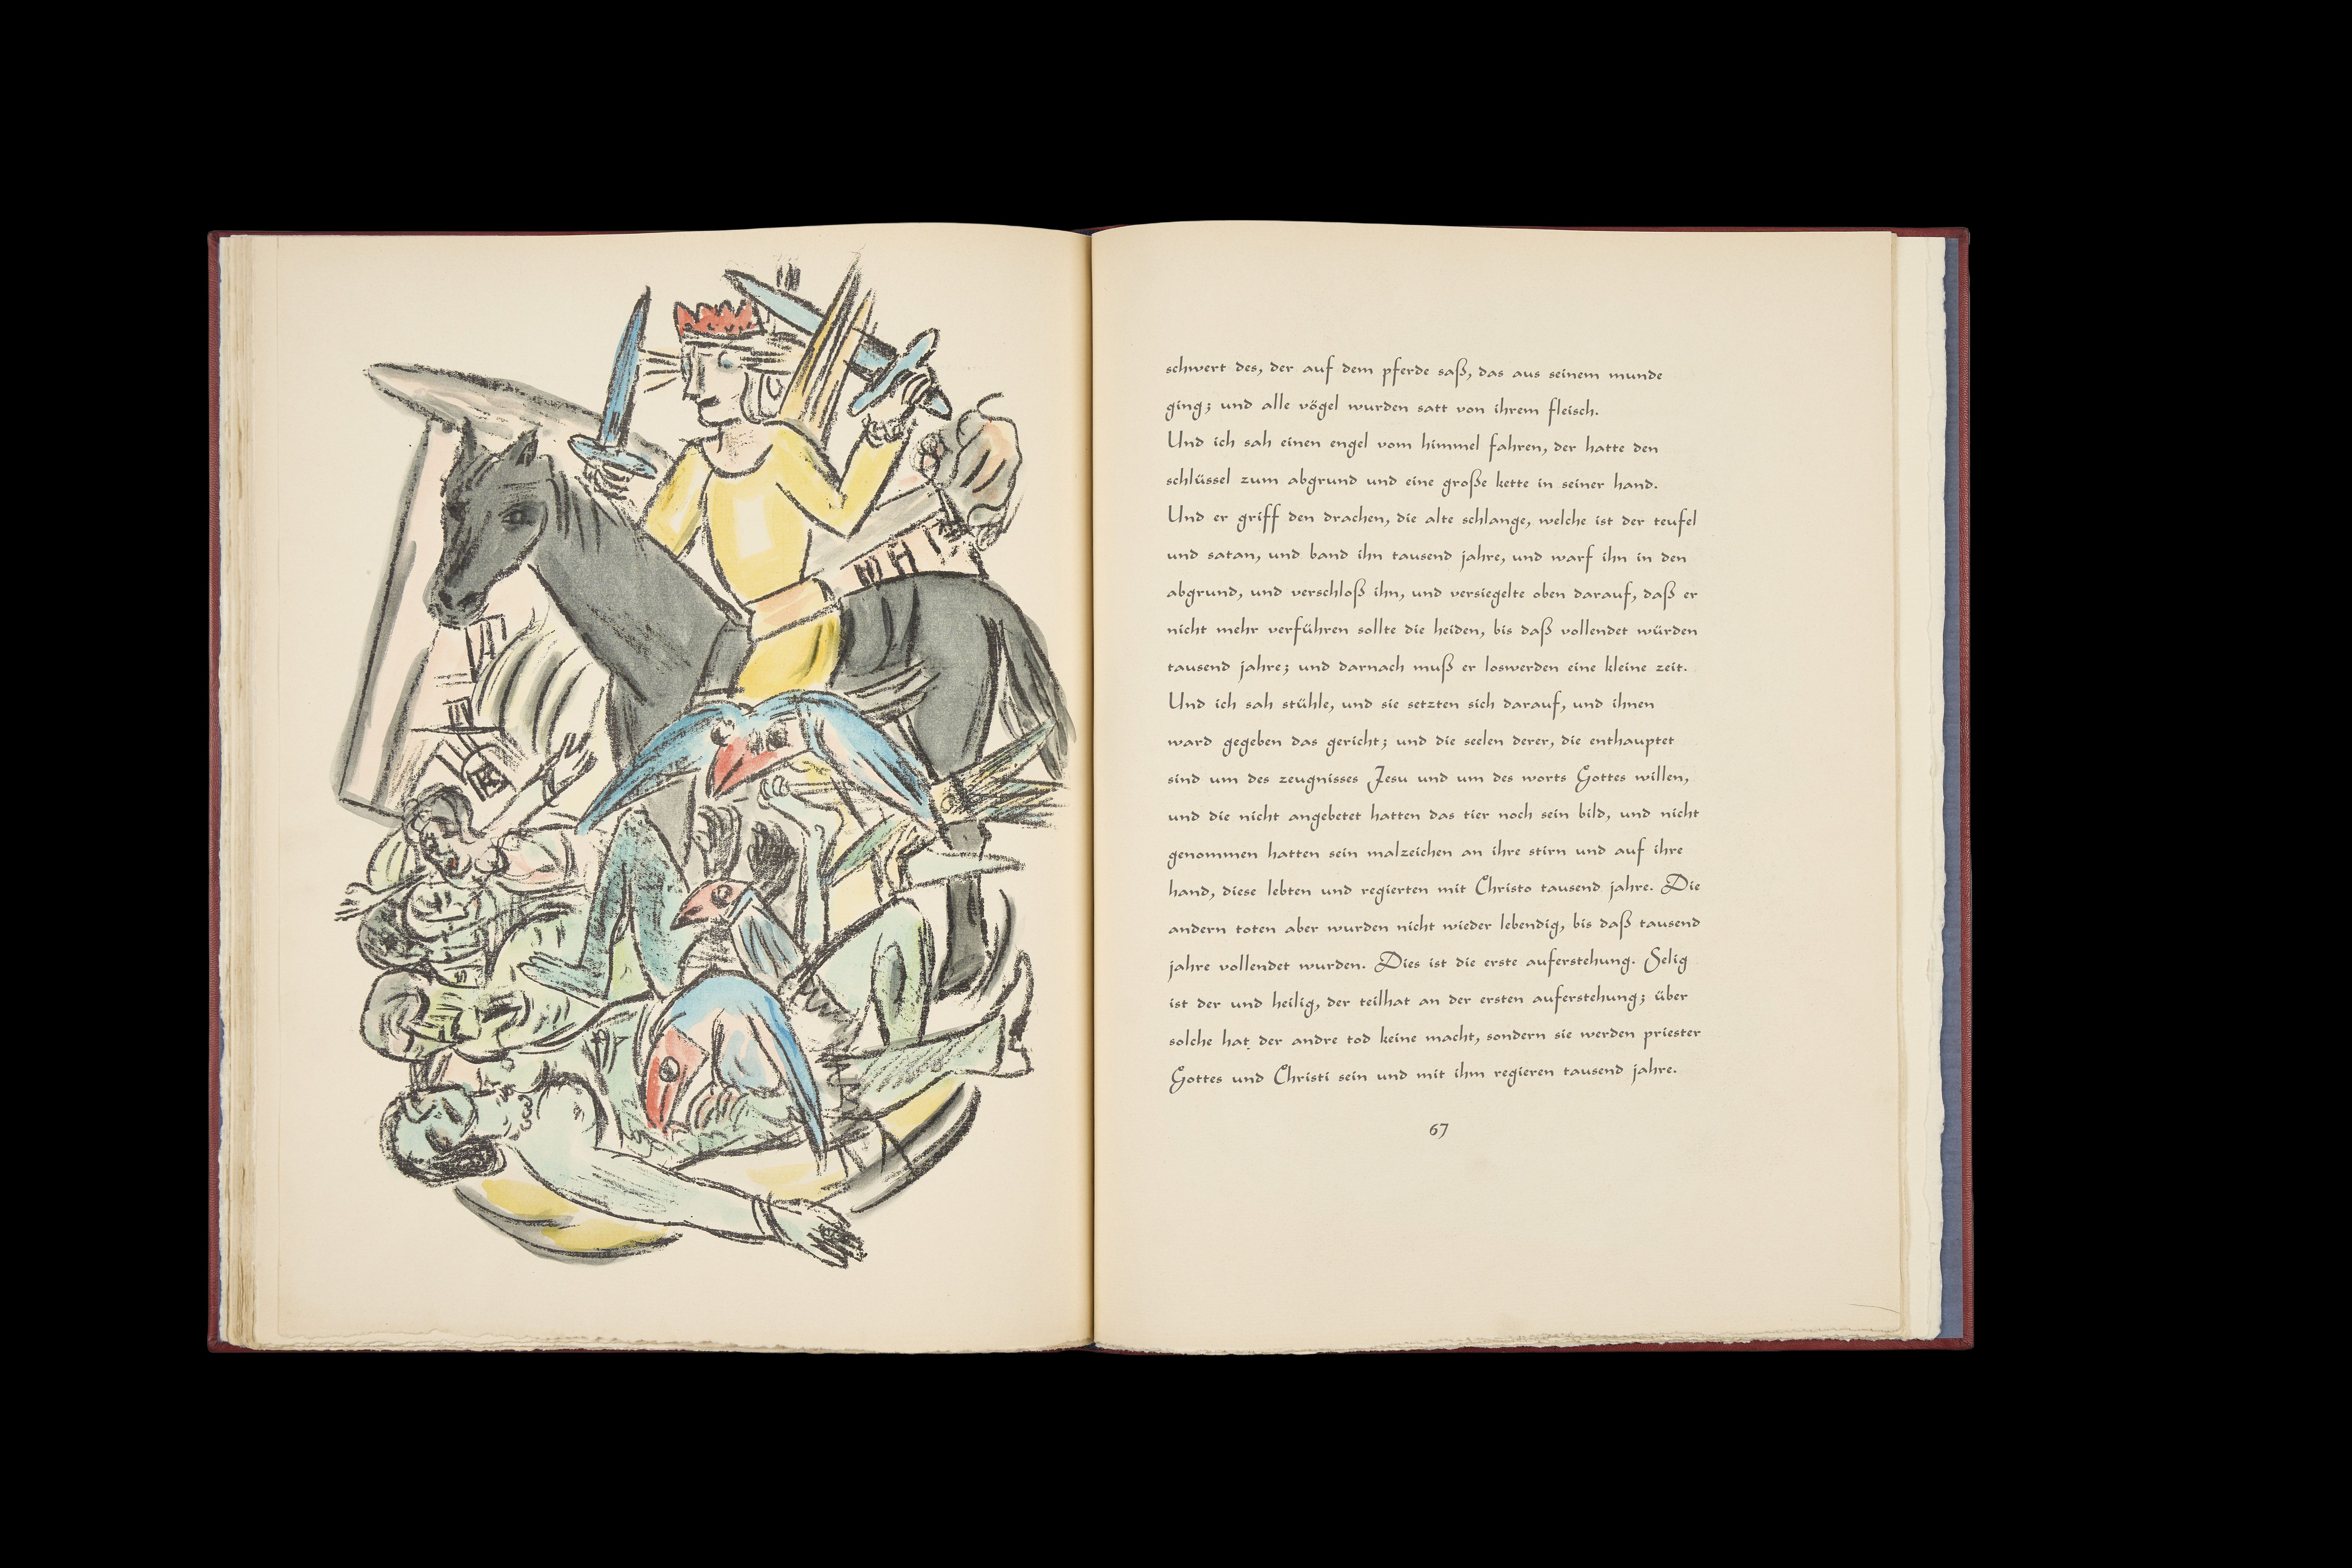 schwert des, der auf dem pferde saß, das aus seinem munde
ging; und alle vögel wurden satt von ihrem fleisch.
Und ich sah einen engel vom himmel fahren, der hatte den
schlüssel zum abgrund und eine große kette in seiner hand.
Und er griff den drachen, die alte schlange, welche ist der teufel
und satan, und band ihn tausend jahre, und warf ihn in den
abgrund, und verschloß ihn, und versiegelte oben darauf, daß er
nicht mehr verführen sollte die heiden, bis daß vollendet würden
tausend jahre; und darnach muß er loswerden eine kleine zeit.
Und ich sah stühle, und sie setzten sich darauf, und ihnen
ward gegeben das gericht; und die seelen derer, die enthauptet
sind um des zeugnisses Jesu und um des worts Gottes willen,
und die nicht angebetet hatten das tier noch sein bild, und nicht
genommen hatten sein malzeichen an ihre stirn und auf ihre
hand, diese lebten und regierten mit Christo tausend jahre. Die
andern toten aber wurden nicht wieder lebendig, bis daß tausend
jahre vollendet wurden. Dies ist die erste auferstehung. Selig
ist der und heilig, der teilhat an der ersten auferstehung; über
solche hat der andre tod keine macht, sondern sie werden priester
Gottes und Christi sein und mit ihm regieren tausend jahre.
67